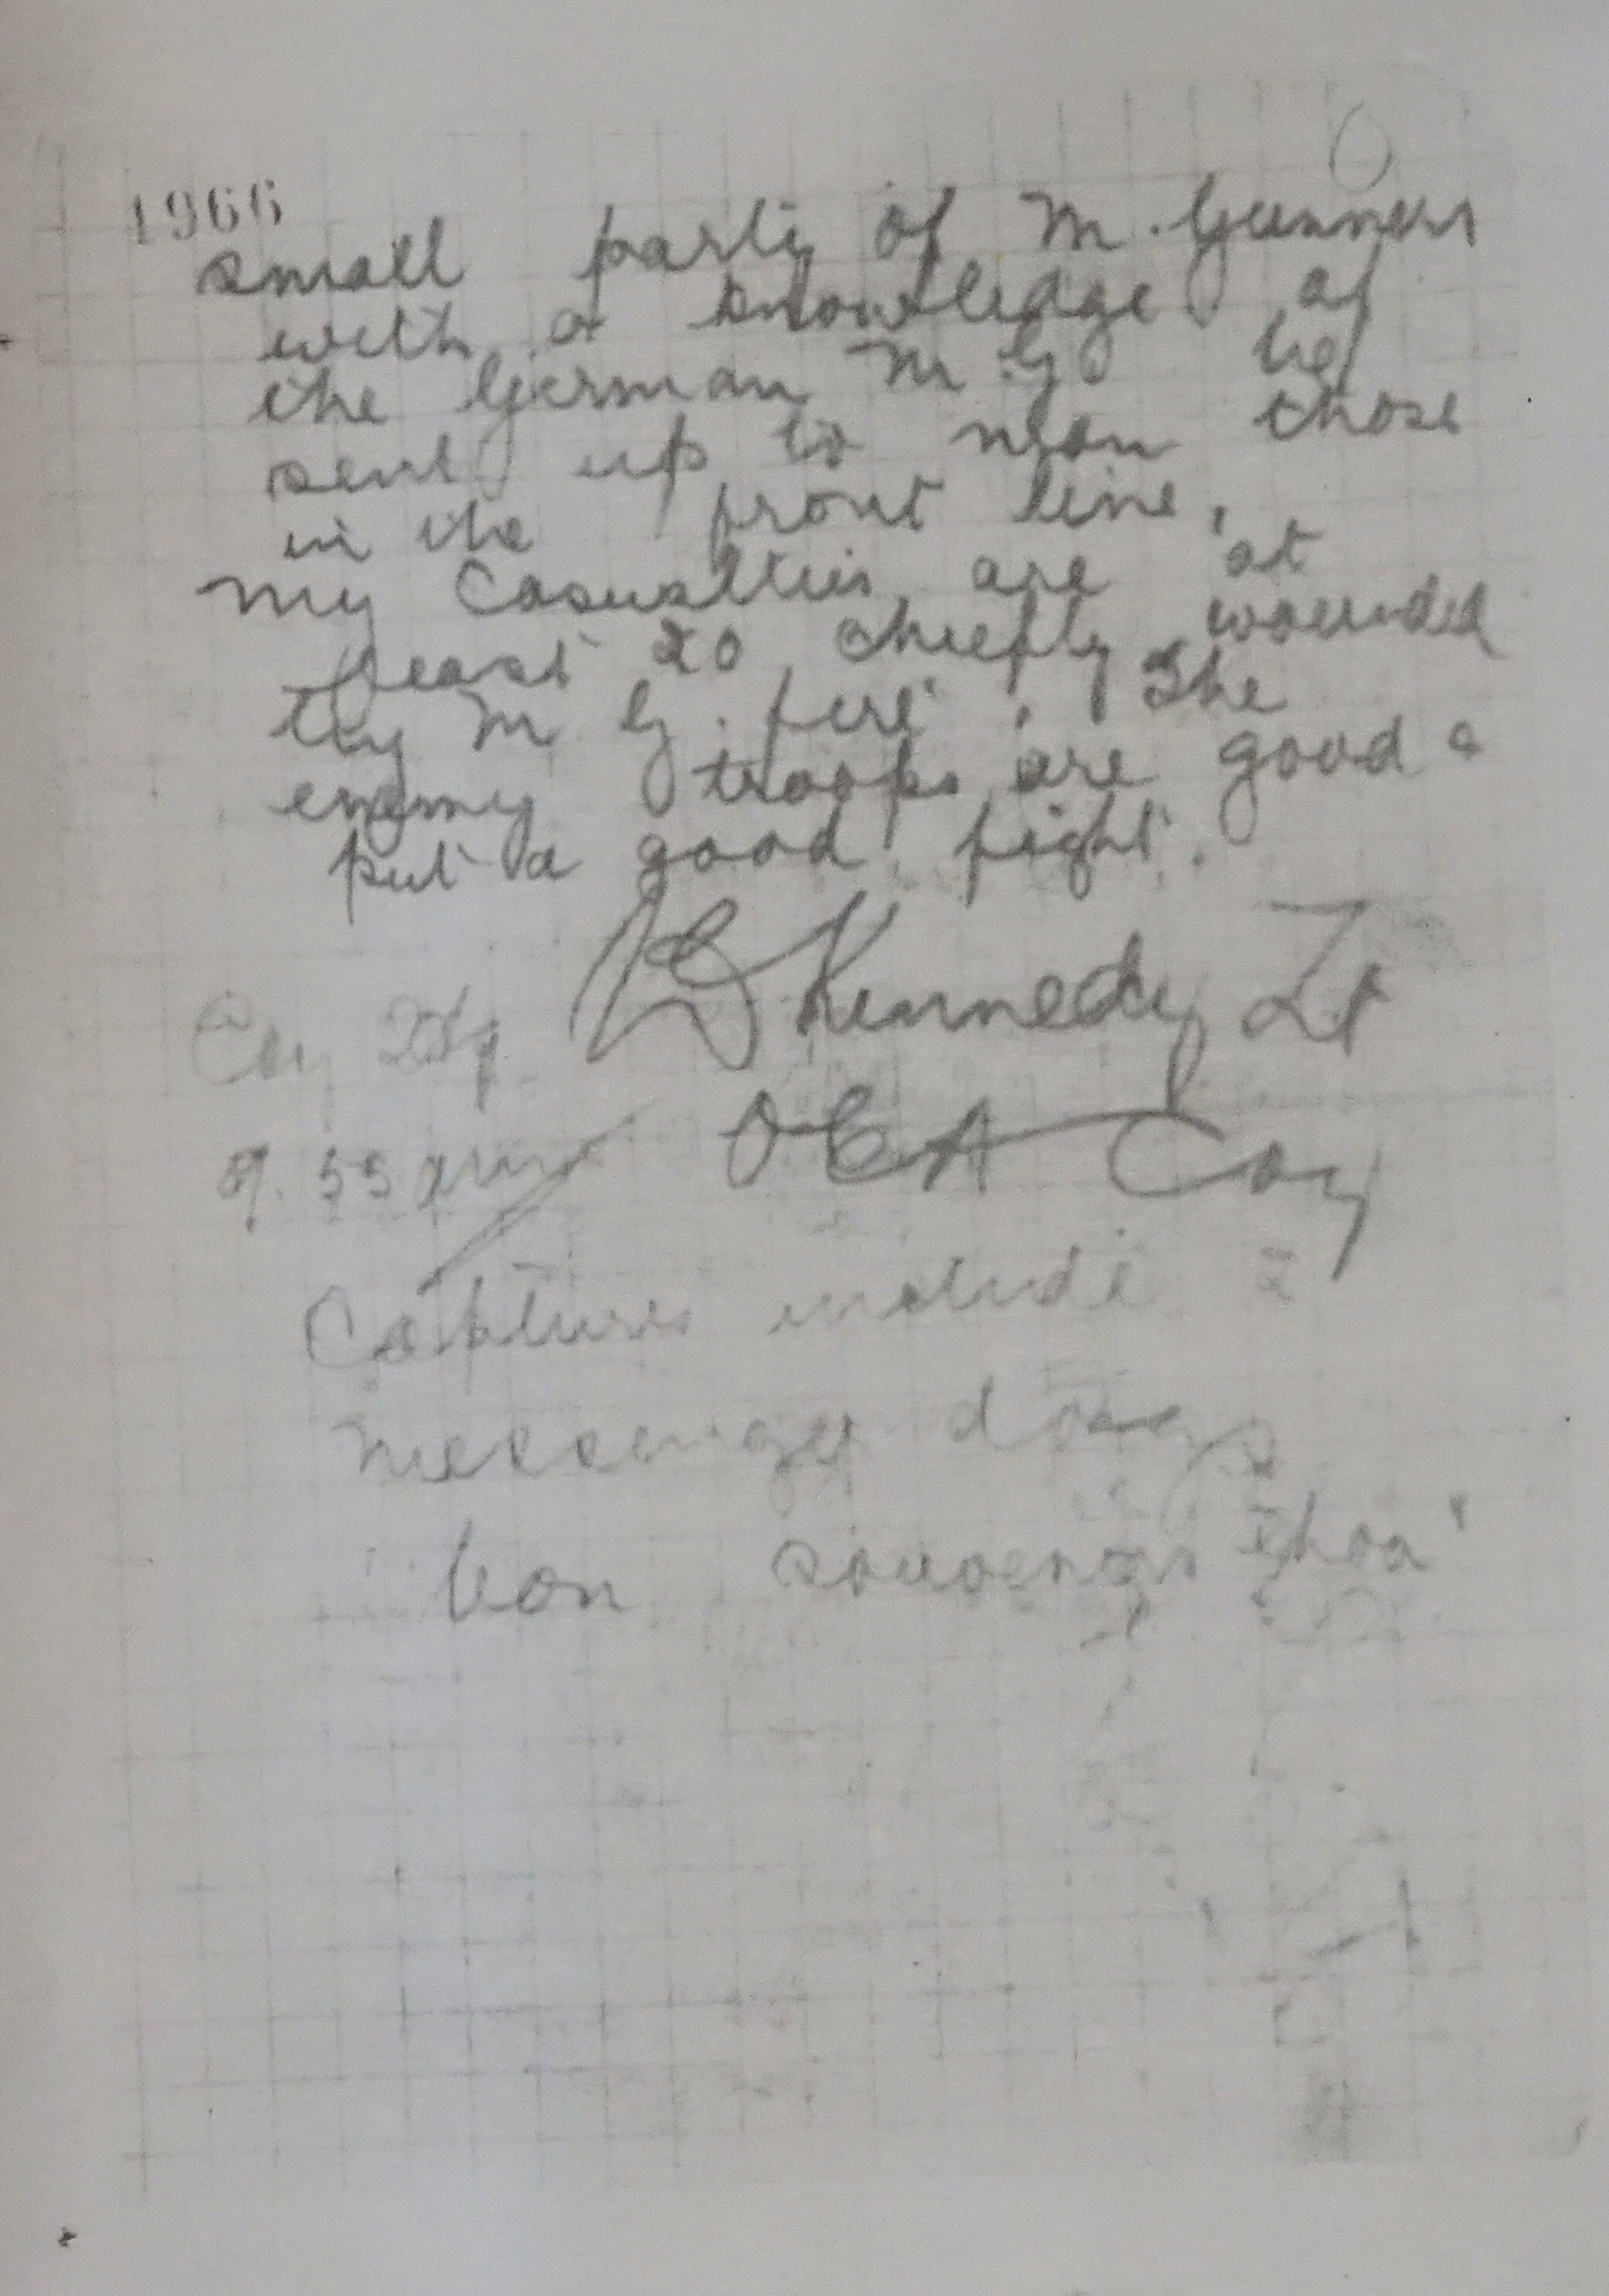 1966
small party of M. Gunners
with a knowledge of
the German M.G be
sent up to man those
in the front line.
My casualties are at
least 20 chiefly wounded
by M G. fire. The
enemy troops are good &
put a good fight.
Kennedy Lt
Coy Hq
9.55 am O C A Coy
Captures include 2
messenger dogs
bon souvenirs